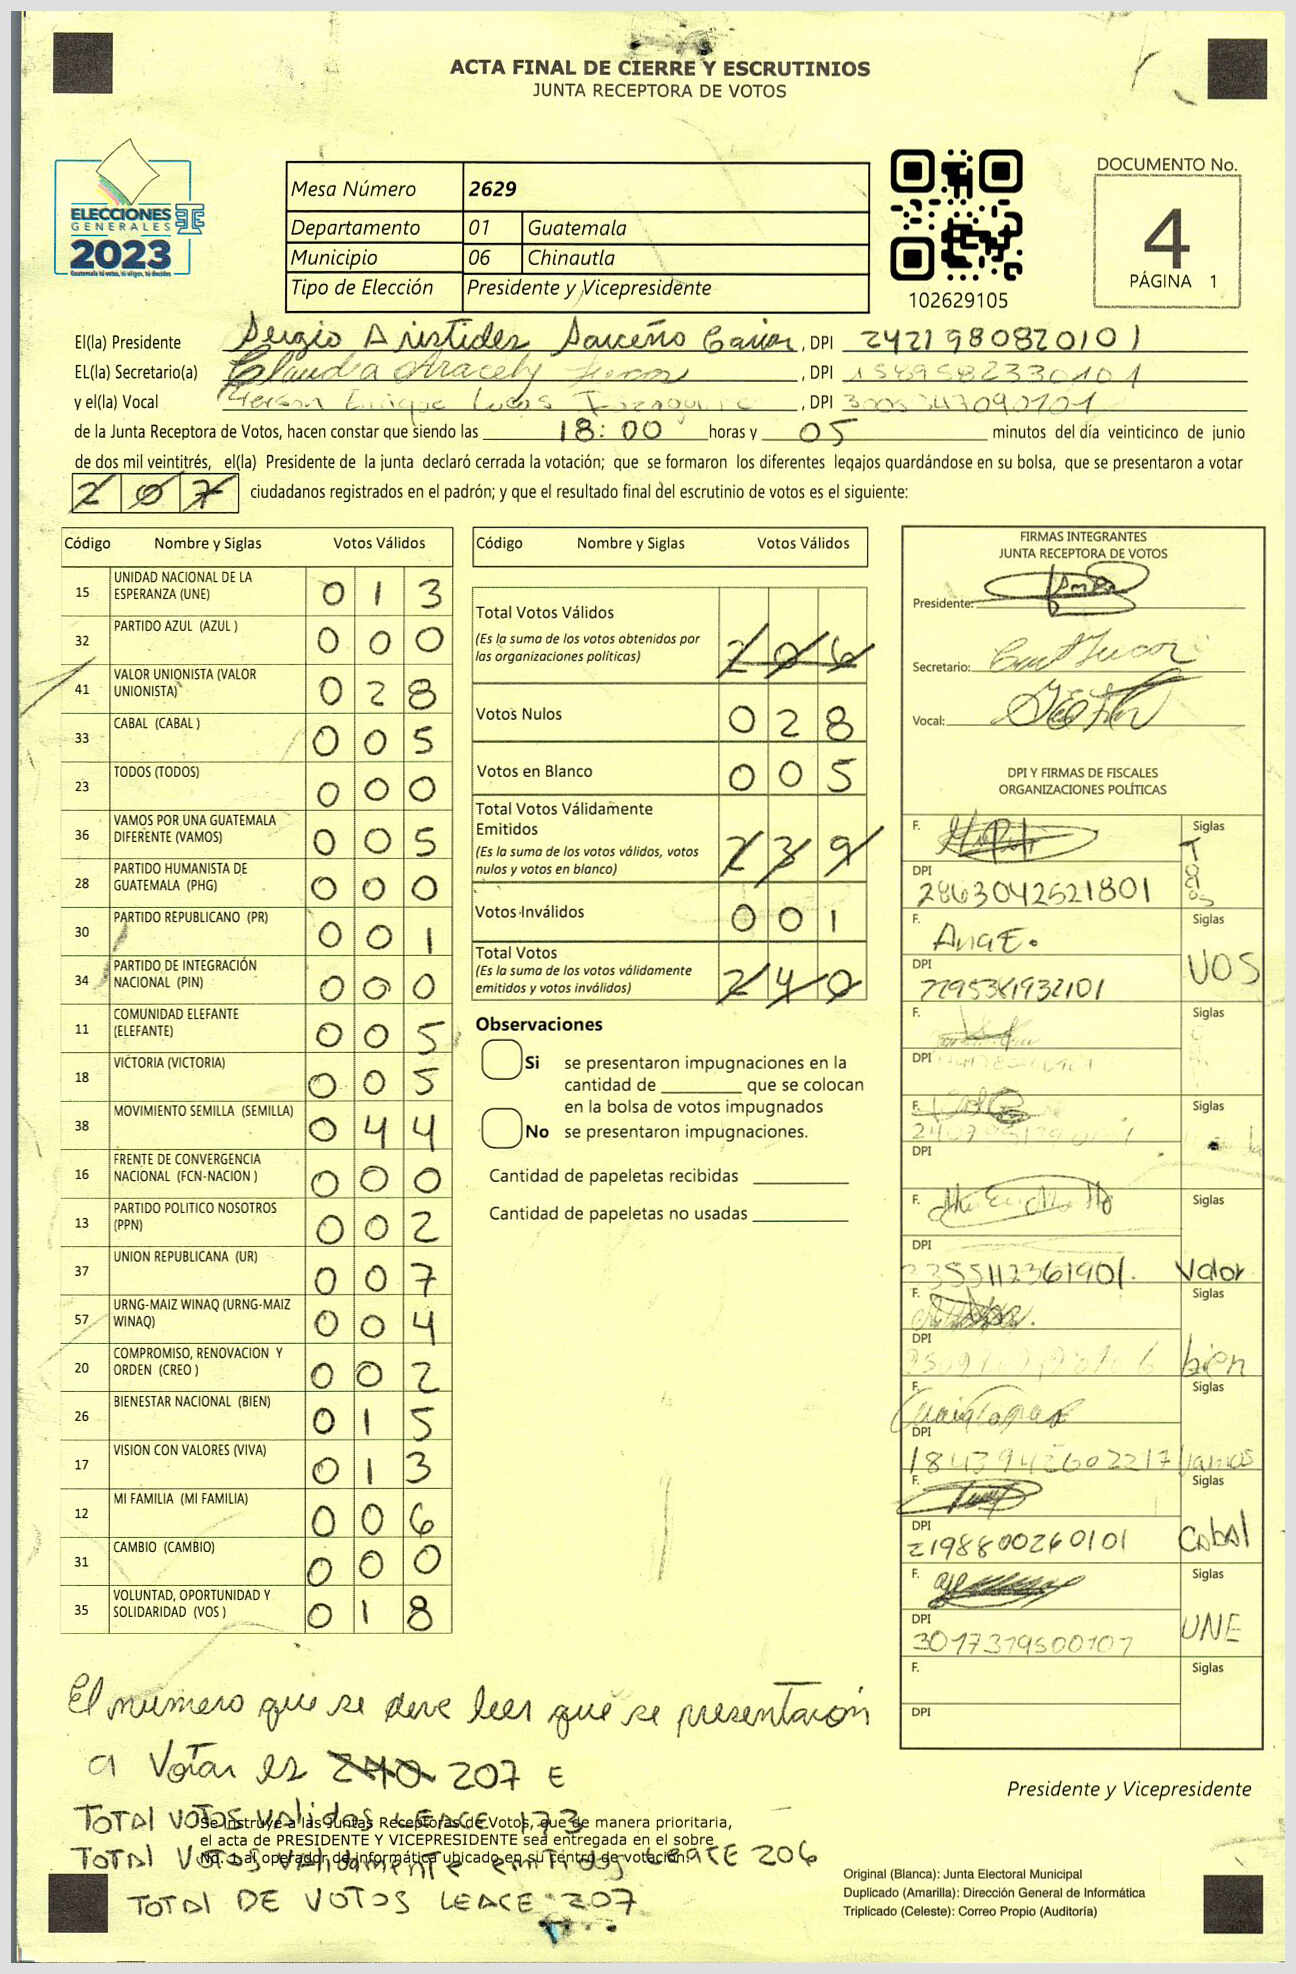 ACTA FINAL DE CIERRE Y ESCRUTINIOS
JUNTA RECEPTORA DE VOTOS
ELECCIONES
GENERALES
2023
Guatemala tú votas, tú eliges, tú decides
Mesa Número 2629
Departamento 01 Guatemala
Municipio 06 Chinautla
Tipo de Elección Presidente y Vicepresidente
102629105
DOCUMENTO No.
4
PÁGINA 1
El(la) Presidente Sergio Aristides Sarceño , DPI 2421980820101
EL(la) Secretario(a) Claudia Aracely , DPI 1589582330101
y el(la) Vocal Enrique Lucas , DPI
de la Junta Receptora de Votos, hacen constar que siendo las 18:00 horas y 05 minutos del día veinticinco de junio
de dos mil veintitrés, el(la) Presidente de la junta declaró cerrada la votación; que se formaron los diferentes legajos guardándose en su bolsa, que se presentaron a votar
207 ciudadanos registrados en el padrón; y que el resultado final del escrutinio de votos es el siguiente:
Código Nombre y Siglas Votos Válidos
15 UNIDAD NACIONAL DE LA ESPERANZA (UNE) 0 1 3
32 PARTIDO AZUL (AZUL ) 0 0 0
41 VALOR UNIONISTA (VALOR UNIONISTA) 0 2 8
33 CABAL (CABAL ) 0 0 5
23 TODOS (TODOS) 0 0 0
36 VAMOS POR UNA GUATEMALA DIFERENTE (VAMOS) 0 0 5
28 PARTIDO HUMANISTA DE GUATEMALA (PHG) 0 0 0
30 PARTIDO REPUBLICANO (PR) 0 0 1
34 PARTIDO DE INTEGRACIÓN NACIONAL (PIN) 0 0 0
11 COMUNIDAD ELEFANTE (ELEFANTE) 0 0 5
18 VICTORIA (VICTORIA) 0 0 5
38 MOVIMIENTO SEMILLA (SEMILLA) 0 4 4
16 FRENTE DE CONVERGENCIA NACIONAL (FCN-NACION ) 0 0 0
13 PARTIDO POLITICO NOSOTROS (PPN) 0 0 2
37 UNION REPUBLICANA (UR) 0 0 7
57 URNG-MAIZ WINAQ (URNG-MAIZ WINAQ) 0 0 4
20 COMPROMISO, RENOVACION Y ORDEN (CREO ) 0 0 2
26 BIENESTAR NACIONAL (BIEN) 0 1 5
17 VISION CON VALORES (VIVA) 0 1 3
12 MI FAMILIA (MI FAMILIA) 0 0 6
31 CAMBIO (CAMBIO) 0 0 0
35 VOLUNTAD, OPORTUNIDAD Y SOLIDARIDAD (VOS ) 0 1 8
Código Nombre y Siglas Votos Válidos
Total Votos Válidos 2 0 6
(Es la suma de los votos obtenidos por
las organizaciones políticas)
Votos Nulos 0 2 8
Votos en Blanco 0 0 5
Total Votos Válidamente
Emitidos 2 3 9
(Es la suma de los votos válidos, votos
nulos y votos en blanco)
Votos Inválidos 0 0 1
Total Votos 2 4 0
(Es la suma de los votos válidamente
emitidos y votos inválidos)
Observaciones
Si se presentaron impugnaciones en la
cantidad de ________ que se colocan
en la bolsa de votos impugnados
No se presentaron impugnaciones.
Cantidad de papeletas recibidas
Cantidad de papeletas no usadas
FIRMAS INTEGRANTES
JUNTA RECEPTORA DE VOTOS
Presidente:
Secretario:
Vocal:
DPI Y FIRMAS DE FISCALES
ORGANIZACIONES POLÍTICAS
F. Siglas Todos
DPI 2863042521801
F. Ana E. Siglas VOS
DPI
F. Siglas
DPI
F. Siglas
DPI
F. Siglas Valor
DPI 2355112361901.
F. Siglas bien
DPI
F. Siglas Vamos
DPI 1843942602217
F. Siglas CabAl
DPI 2198800260101
F. Siglas UNE
DPI 3017379500101
F. Siglas
DPI
El numero que se deve leer que se presentaron
a Votar es 240 207 E
TOTAL VOTOS VALIDOS LEACE 173
Se instruye a las Juntas Receptoras de Votos, que de manera prioritaria,
el acta de PRESIDENTE Y VICEPRESIDENTE sea entregada en el sobre
TOTAL VOTOS Validamente emitidos LEACE 206
No. 1 al operador de informática ubicado en su centro de votación.
TOTAL DE VOTOS LEACE 207
Presidente y Vicepresidente
Original (Blanca): Junta Electoral Municipal
Duplicado (Amarilla): Dirección General de Informática
Triplicado (Celeste): Correo Propio (Auditoría)